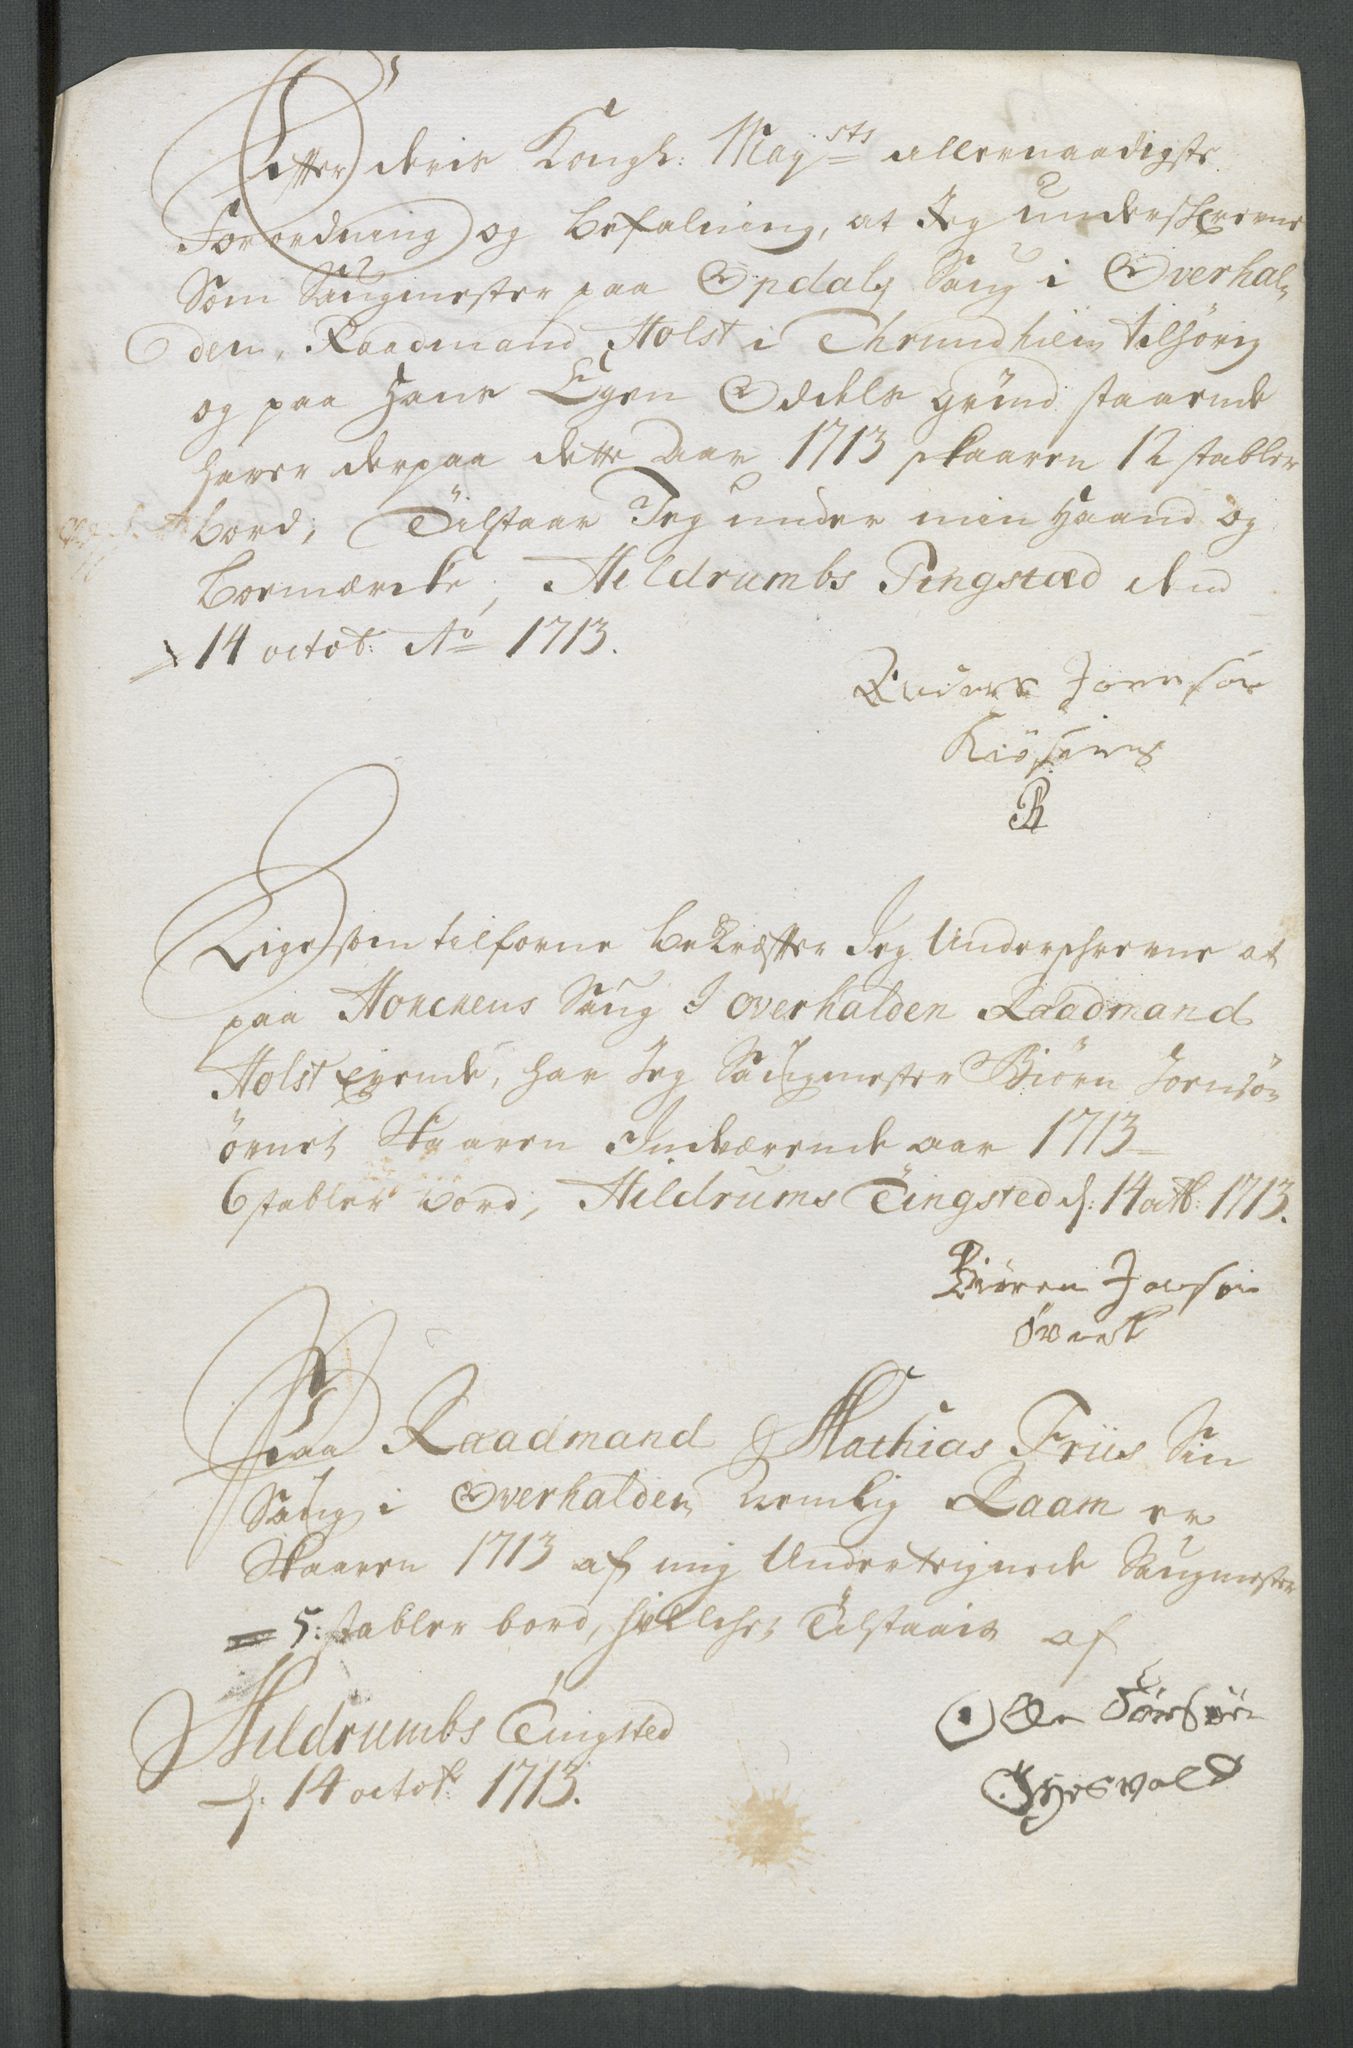 Effter deris Kongl: Maysts allernaadigste
Forordning og befalning, at Jeg underschrevne
Som Saugmester paa Opdals Saug i Overhal-
den, Raadmand Holst i Thrundhiem tilhörig
og paa Hans Egen Odels grund staaende
haver derpaa dette aar 1713 skaaren 12 stabler
bord, Tilstaar Jeg under min Haand og
boemærcke, Hildrumbs Tingstæd den
14 octob: Ao 1713.
Anders Joensön
Lige som tilforne bekræffter Jeg Underschrevne at
paa Honchens Saug I overhalden Raadmand
Holst Eyende, har Jeg Saugmester Biörn Joensön
Skaaren Indværende aar 1713
6 stabler bord, Hildrums Tingsted d: 14 octb: 1713.
Biören Jonsön
Paa Raadmand Mathias Friis Sin
Saug i Overhalden Nemlig Raam er
Skaaren 1713 af mig Underteignede Saugmester
5: stabler bord, hvilchet Tilstaais af
Hildrumbs Tingsted
d: 14 octob: 1713.